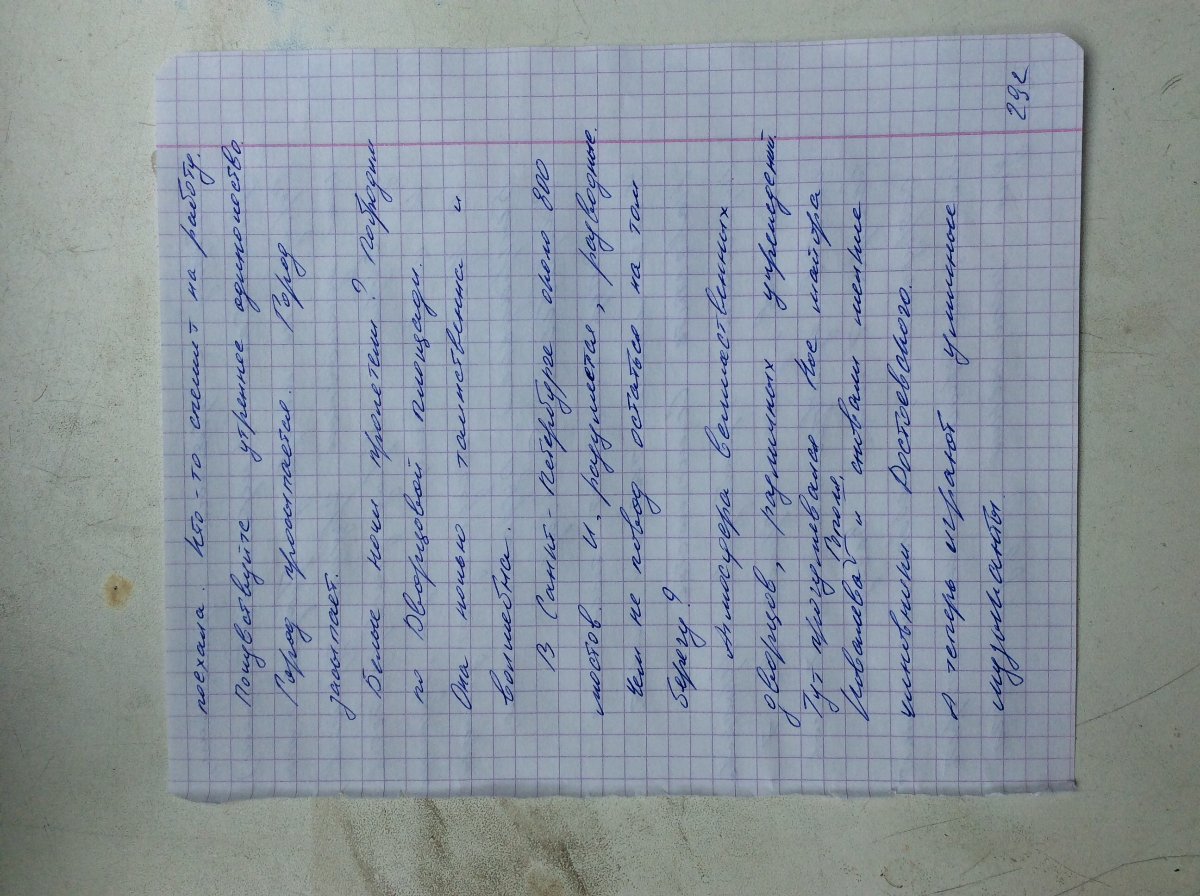 поехала. Кто-то спешит на работу.
Почувствуйте утреннее одиночество.
Город просыпается. Город
засыпает.
Белые ночи пролетели? Побродим
по Дворцовой площади.
Она ночью таинственна и
волшебна.
В Санкт-Петербурге около 800
мостов. И, разумеется, разводные.
Чем не повод остаться на том
берегу?
Атмосфера величественных
дворцов, различных учреждений.
Тут прогуливался Нос майора
Ковалёва и сновали мелкие
чиновники Достоевского.
А теперь играют уличные
музыканты.
292